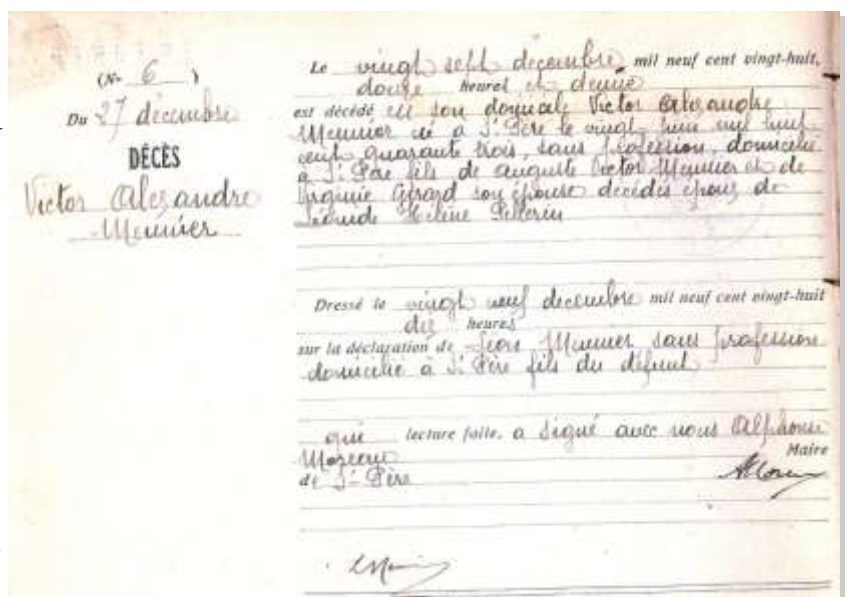 (N° 6 )
Du 27 décembre
DÉCÈS
Victor Alexandre
Meunier
Le vingt sept décembre mil neuf cent vingt-huit,
douze heures et demie
est décédé en son domicile Victor Alexandre
Meunier né à St Père le vingt juin mil huit
cent quarante trois, sans profession, domicilié
à St Père fils de Auguste Victor Meunier et de
Virginie Girard son épouse décédés époux de
Hélène Pellerin
Dressé le vingt neuf décembre mil neuf cent vingt-huit
dix heures
sur la déclaration de Léon Meunier sans profession
domicilié à St Père fils du défunt
qui lecture faite, a signé avec nous Alphonse
Moreau Maire
de St Père